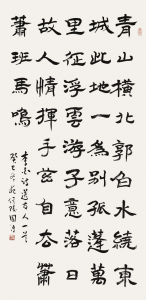 青山橫北郭白水繞東
城此地一為別孤蓬萬
里征浮雲游子意落日
故人情揮手茲自去蕭
蕭班馬鳴
李白詩送友人一首
癸巳